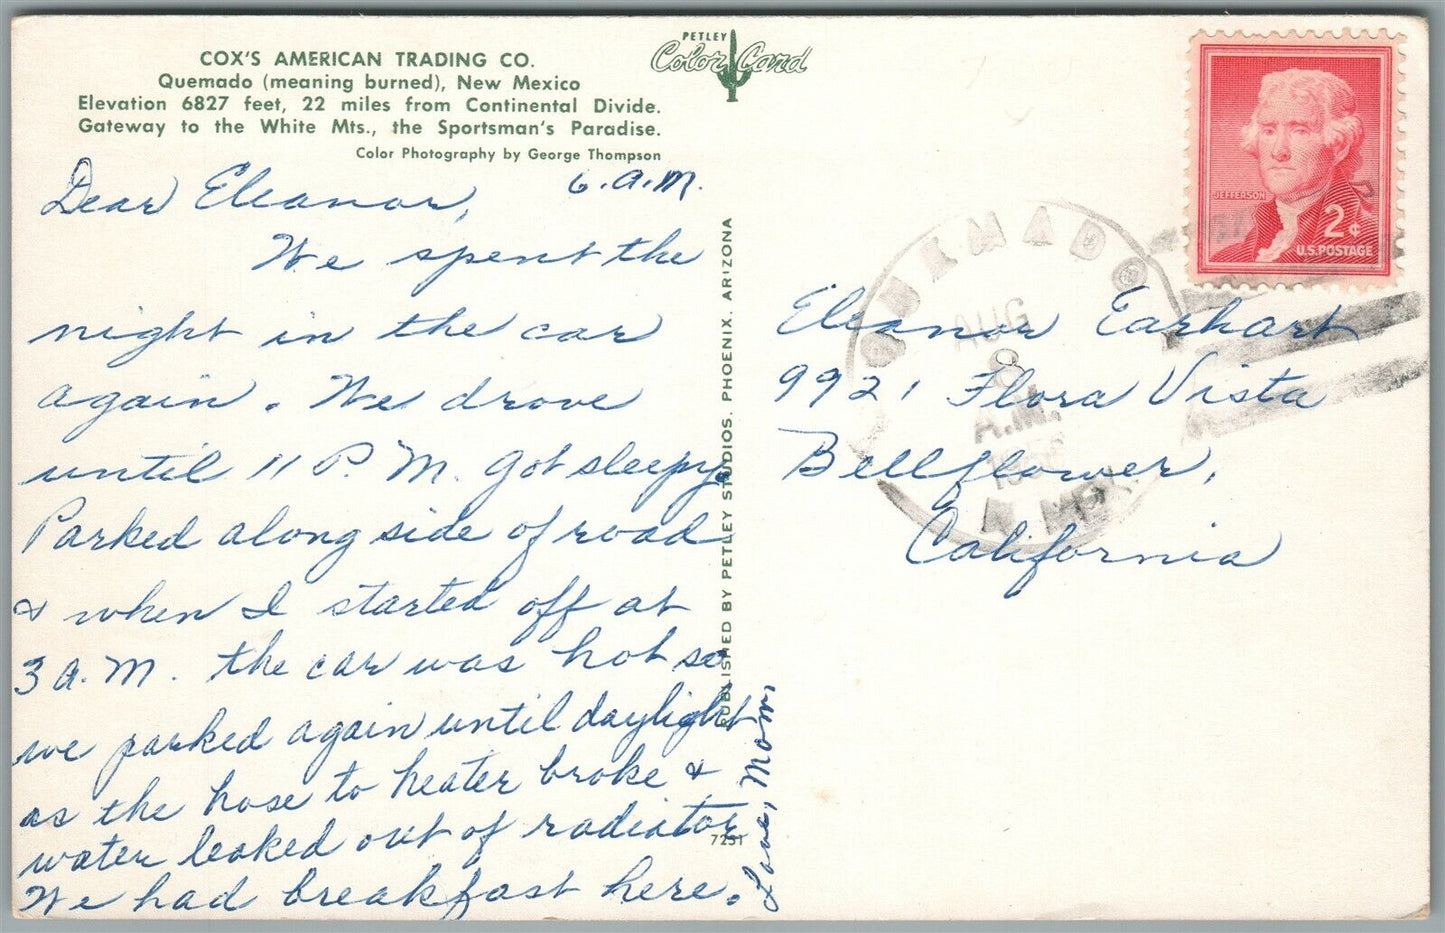 COX'S AMERICAN TRADING CO.
Quemado (meaning burned), New Mexico
Elevation 6827 feet, 22 miles from Continental Divide.
Gateway to the White Mts., the Sportsman's Paradise.
Color Photography by George Thompson
PETLEY
Color Card
6.a.m.
Dear Eleanor,
We spent the
night in the car
again. We drove
until 11 P.M. got sleepy.
Parked along side of road
& when I started off at
3 a.m. the car was hot so
we parked again until daylight
as the hose to heater broke &
water leaked out of radiator
We had breakfast here.
Love, Mom,
PUBLISHED BY PETLEY STUDIOS, PHOENIX, ARIZONA
7251
JEFFERSON
2¢
U.S. POSTAGE
QUEMADO
AUG
8
A.M.
N. MEX.
Eleanor Earhart
9921 Flora Vista
Bellflower,
California